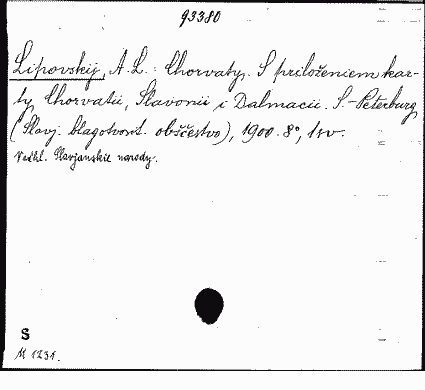 93380
Lipovskij, A. L.: Chorvaty. S priloženiem kar-
ty Chorvatii, Slavonii i Dalmacii. S.-Peterburg,
(Slavj. blagotvorit. obščestvo), 1900. 8°, 1 sv.
Vedl. Slavjanskie narody.
S
M 1231.